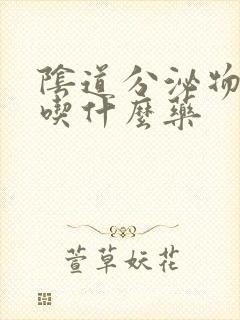 陰道分泌物
喫什麼藥
萱草妖花